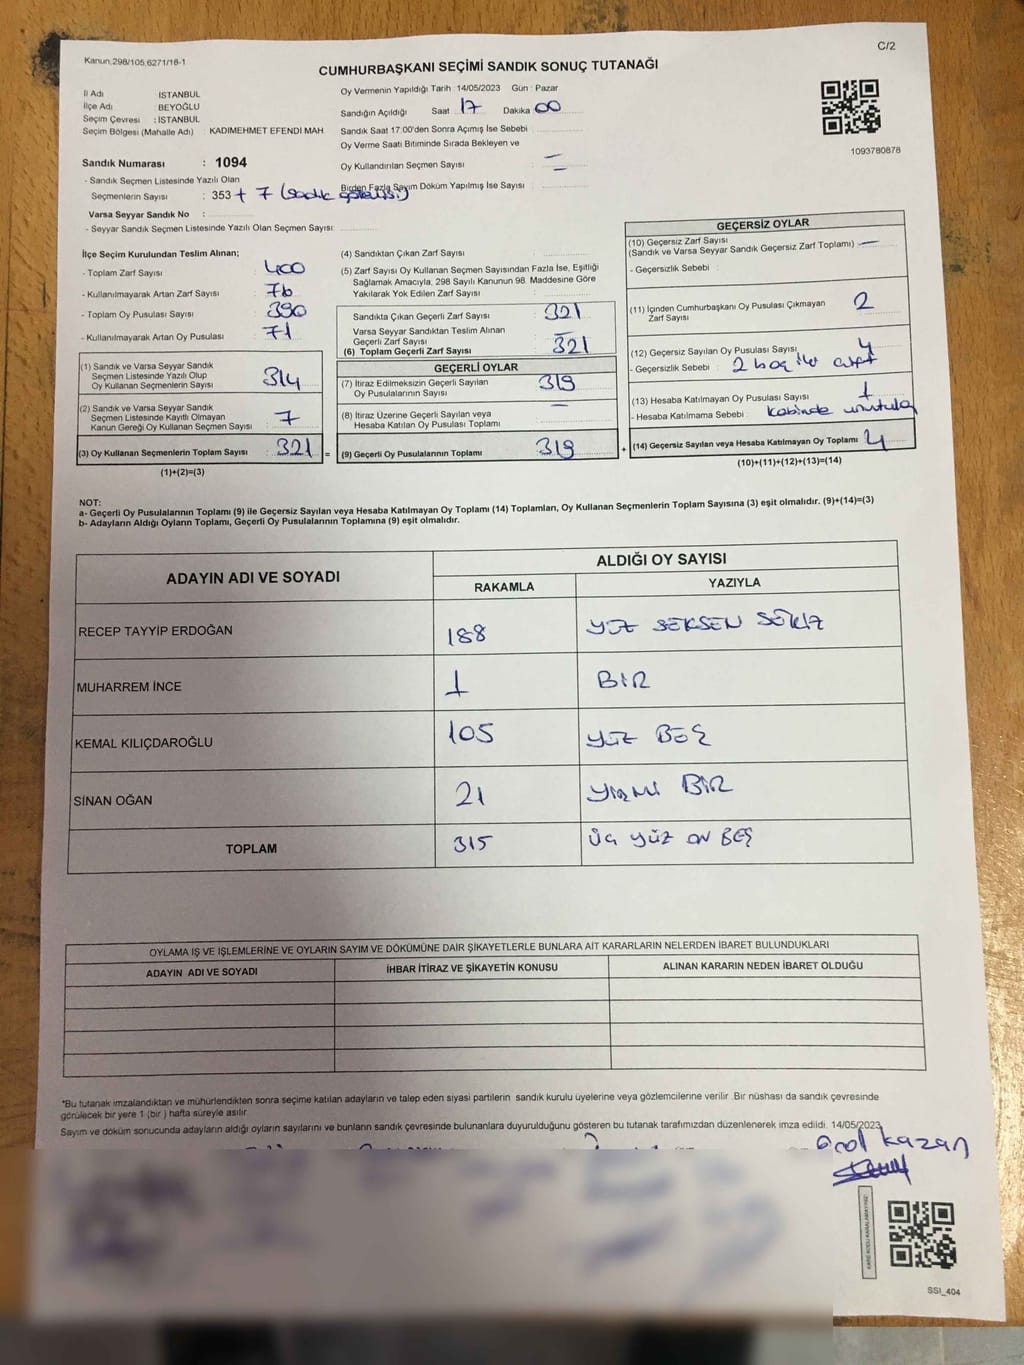 Kanun,298/105,6271/18-1
C/2
CUMHURBAŞKANI SEÇİMİ SANDIK SONUÇ TUTANAĞI
İl Adı İSTANBUL
İlçe Adı BEYOĞLU
Seçim Çevresi : İSTANBUL
Seçim Bölgesi (Mahalle Adı) : KADIMEHMET EFENDİ MAH
Sandık Numarası : 1094
- Sandık Seçmen Listesinde Yazılı Olan
Seçmenlerin Sayısı : 353 + 7 (sandık görevlisi)
Varsa Seyyar Sandık No :
- Seyyar Sandık Seçmen Listesinde Yazılı Olan Seçmen Sayısı:
Oy Vermenin Yapıldığı Tarih :14/05/2023 Gün : Pazar
Sandığın Açıldığı Saat 17 Dakika 00
Sandık Saat 17:00'den Sonra Açımış İse Sebebi :
Oy Verme Saati Bitiminde Sırada Bekleyen ve
Oy Kullandırılan Seçmen Sayısı : —
Birden Fazla Sayım Döküm Yapılmış İse Sayısı : —
1093780878
İlçe Seçim Kurulundan Teslim Alınan;
- Toplam Zarf Sayısı : 400
- Kullanılmayarak Artan Zarf Sayısı : 76
- Toplam Oy Pusulası Sayısı : 390
- Kullanılmayarak Artan Oy Pusulası : 71
(1) Sandık ve Varsa Seyyar Sandık
Seçmen Listesinde Yazılı Olup
Oy Kullanan Seçmenlerin Sayısı : 314
(2) Sandık ve Varsa Seyyar Sandık
Seçmen Listesinde Kayıtlı Olmayan
Kanun Gereği Oy Kullanan Seçmen Sayısı : 7
(3) Oy Kullanan Seçmenlerin Toplam Sayısı : 321 =
(1)+(2)=(3)
(4) Sandıktan Çıkan Zarf Sayısı :
(5) Zarf Sayısı Oy Kullanan Seçmen Sayısından Fazla İse, Eşitliği
Sağlamak Amacıyla, 298 Sayılı Kanunun 98. Maddesine Göre
Yakılarak Yok Edilen Zarf Sayısı :
Sandıkta Çıkan Geçerli Zarf Sayısı : 321
Varsa Seyyar Sandıktan Teslim Alınan
Geçerli Zarf Sayısı : —
(6) Toplam Geçerli Zarf Sayısı : 321
GEÇERLİ OYLAR
(7) İtiraz Edilmeksizin Geçerli Sayılan
Oy Pusulalarının Sayısı : 319
(8) İtiraz Üzerine Geçerli Sayılan veya
Hesaba Katılan Oy Pusulası Toplamı : —
(9) Geçerli Oy Pusulalarının Toplamı : 319 +
GEÇERSİZ OYLAR
(10) Geçersiz Zarf Sayısı
(Sandık ve Varsa Seyyar Sandık Geçersiz Zarf Toplamı) : —
- Geçersizlik Sebebi :
(11) İçinden Cumhurbaşkanı Oy Pusulası Çıkmayan
Zarf Sayısı : 2
(12) Geçersiz Sayılan Oy Pusulası Sayısı : 4
- Geçersizlik Sebebi : 2 boş iki çift
(13) Hesaba Katılmayan Oy Pusulası Sayısı : 1
- Hesaba Katılmama Sebebi : Kabinde unutulan
(14) Geçersiz Sayılan veya Hesaba Katılmayan Oy Toplamı : 4
(10)+(11)+(12)+(13)=(14)
NOT:
a- Geçerli Oy Pusulalarının Toplamı (9) ile Geçersiz Sayılan veya Hesaba Katılmayan Oy Toplamı (14) Toplamları, Oy Kullanan Seçmenlerin Toplam Sayısına (3) eşit olmalıdır. (9)+(14)=(3)
b- Adayların Aldığı Oyların Toplamı, Geçerli Oy Pusulalarının Toplamına (9) eşit olmalıdır.
ADAYIN ADI VE SOYADI ALDIĞI OY SAYISI
RAKAMLA YAZIYLA
RECEP TAYYİP ERDOĞAN 188 YÜZ SEKSEN SEKİZ
MUHARREM İNCE 1 BİR
KEMAL KILIÇDAROĞLU 105 YÜZ BEŞ
SİNAN OĞAN 21 YİRMİ BİR
TOPLAM 315 ÜÇ YÜZ ON BEŞ
OYLAMA İŞ VE İŞLEMLERİNE VE OYLARIN SAYIM VE DÖKÜMÜNE DAİR ŞİKAYETLERLE BUNLARA AİT KARARLARIN NELERDEN İBARET BULUNDUKLARI
ADAYIN ADI VE SOYADI İHBAR İTİRAZ VE ŞİKAYETİN KONUSU ALINAN KARARIN NEDEN İBARET OLDUĞU
*Bu tutanak imzalandıktan ve mühürlendikten sonra seçime katılan adayların ve talep eden siyasi partilerin sandık kurulu üyelerine veya gözlemcilerine verilir .Bir nüshası da sandık çevresinde
görülecek bir yere 1 (bir ) hafta süreyle asılır.
Sayım ve döküm sonucunda adayların aldığı oyların sayılarını ve bunların sandık çevresinde bulunanlara duyurulduğunu gösteren bu tutanak tarafımızdan düzenlenerek imza edildi. 14/05/2023
Erol Kazan
KARE KODU KARALAMAYINIZ!
SSI_404